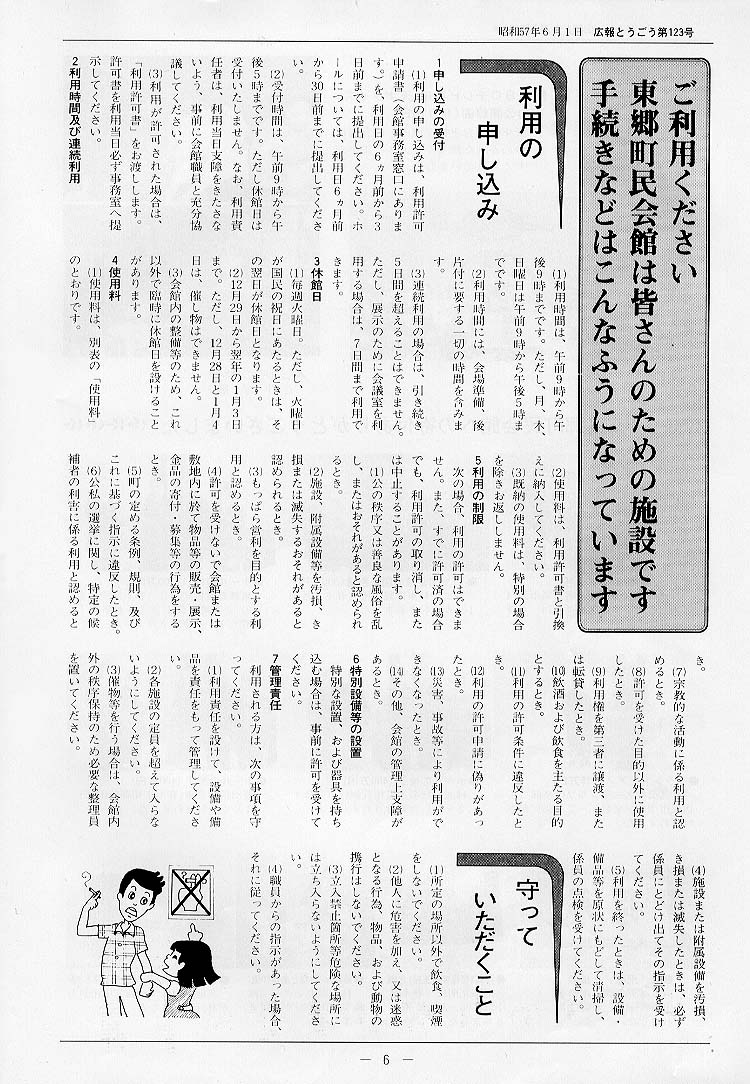 昭和57年6月1日　広報とうごう第123号
ご利用ください
東郷町民会館は皆さんのための施設です
手続きなどはこんなふうになっています
利用の
申し込み
1申し込みの受付
(1)利用の申し込みは、利用許可
申請書（会館事務室窓口にありま
す。）を、利用日の6ヵ月前から3
日前までに提出してください。ホ
ールについては、利用日6ヵ月前
から30日前までに提出してくださ
い。
(2)受付時間は、午前9時から午
後5時までです。ただし休館日は
受付いたしません。なお、利用責
任者は、利用当日支障をきたさな
いよう、事前に会館職員と充分協
議してください。
(3)利用が許可された場合は、
「利用許可書」をお渡しします。
許可書を利用当日必ず事務室へ提
示してください。
2利用時間及び連続利用
(1)利用時間は、午前9時から午
後9時までです。ただし、月、木、
日曜日は午前9時から午後5時ま
でです。
(2)利用時間には、会場準備、後
片付に要する一切の時間を含みま
す。
(3)連続利用の場合は、引き続き
5日間を超えることはできません。
ただし、展示のために会議室を利
用する場合は、7日間まで利用で
きます。
3休館日
(1)毎週火曜日。ただし、火曜日
が国民の祝日にあたるときは、そ
の翌日が休館日となります。
(2)12月29日から翌年の1月3日
まで。ただし、12月28日と1月4
日は、催し物はできません。
(3)会館内の整備等のため、これ
以外で臨時に休館日を設けること
があります。
4使用料
(1)使用料は、別表の「使用料」
のとおりです。
(2)使用料は、利用許可書と引換
えに納入してください。
(3)既納の使用料は、特別の場合
を除きお返ししません。
5利用の制限
次の場合、利用の許可はできま
せん。また、すでに許可済の場合
でも、利用許可の取り消し、また
は中止することがあります。
(1)公の秩序又は善良な風俗を乱
し、またはおそれがあると認められ
るとき。
(2)施設、附属設備等を汚損、き
損または滅失するおそれがあると
認められるとき。
(3)もっぱら営利を目的とする利
用と認めるとき。
(4)許可を受けないで会館または
敷地内に於て物品等の販売・展示、
金品の寄付・募集等の行為をする
とき。
(5)町の定める条例、規則、及び
これに基づく指示に違反したとき。
(6)公私の選挙に関し、特定の候
補者の利害に係る利用と認めると
き。
(7)宗教的な活動に係る利用と認
めるとき。
(8)許可を受けた目的以外に使用
したとき。
(9)利用権を第三者に譲渡、また
は転貸したとき。
(10)飲酒および飲食を主たる目的
とするとき。
(11)利用の許可条件に違反したと
き。
(12)利用の許可申請に偽りがあっ
たとき。
(13)災害、事故等により利用がで
きなくなったとき。
(14)その他、会館の管理上支障が
あるとき。
6特別設備等の設置
特別な設置、および器具を持ち
込む場合は、事前に許可を受けて
ください。
7管理責任
利用される方は、次の事項を守
ってください。
(1)利用責任を設けて、設備や備
品を責任をもって管理してくださ
い。
(2)各施設の定員を超えて入らな
いようにしてください。
(3)催物等を行う場合は、会館内
外の秩序保持のため必要な整理員
を置いてください。
(4)施設または附属設備を汚損、
き損または滅失したときは、必ず
係員にとどけ出てその指示を受け
てください。
(5)利用を終ったときは、設備・
備品等を原状にもどして清掃し、
係員の点検を受けてください。
守って
いただくこと
(1)所定の場所以外で飲食、喫煙
をしないでください。
(2)他人に危害を加え、又は迷惑
となる行為、物品、および動物の
携行はしないでください。
(3)立入禁止箇所等危険な場所に
は立ち入らないようにしてくださ
い。
(4)職員からの指示があった場合、
それに従ってください。
— 6 —